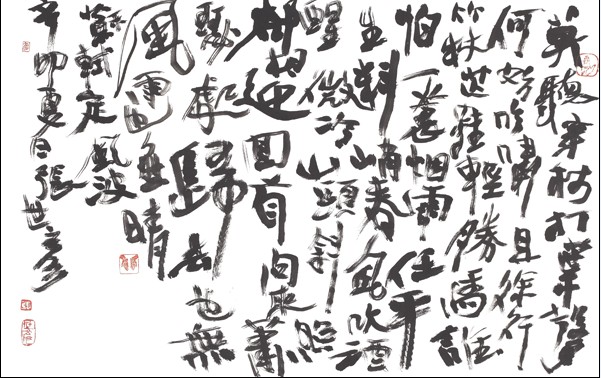 莫聽穿林打葉聲
何妨吟嘯且徐行
竹杖芒鞋輕勝馬誰
怕一蓑烟雨任平
生料峭春風吹酒
醒微冷山頭斜照
相迎回首向來蕭
瑟處歸去也無
風雨也無晴
蘇軾定風波
辛卯夏日張世彦